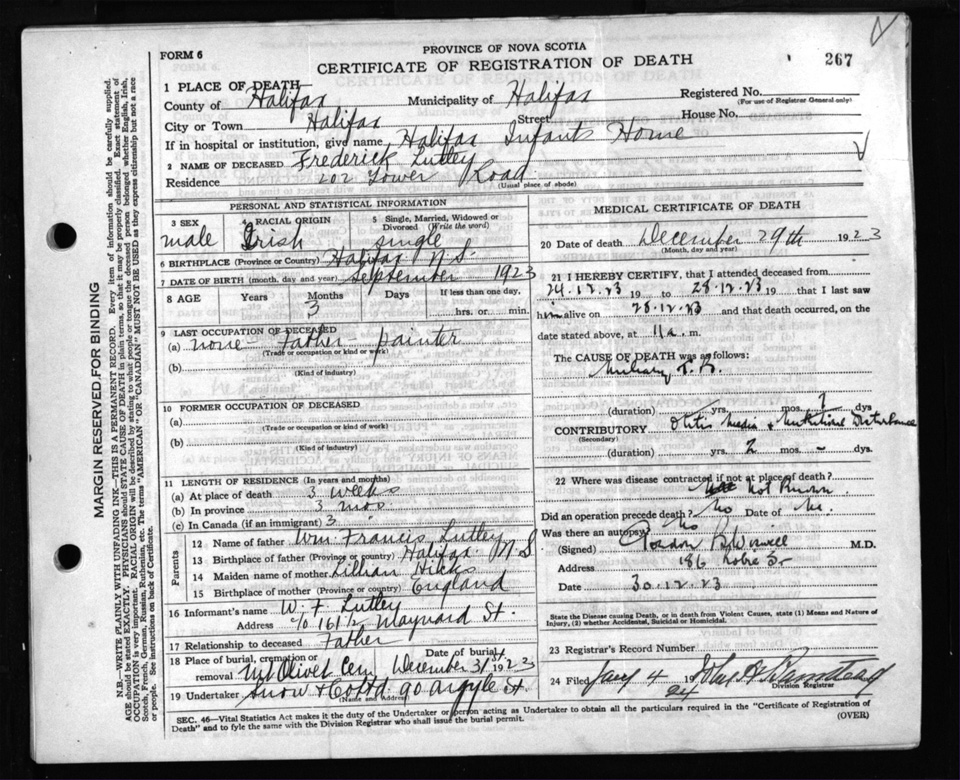 FORM 6
PROVINCE OF NOVA SCOTIA
CERTIFICATE OF REGISTRATION OF DEATH
267
1 PLACE OF DEATH—
County of Halifax Municipality of Halifax Registered No.
(For use of Registrar General only)
City or Town Halifax Street House No.
If in hospital or institution, give name Halifax Infants Home
2 NAME OF DECEASED Frederick Lutley
Residence 202 Tower Road
(Usual place of abode)
PERSONAL AND STATISTICAL INFORMATION
3 SEX 4 RACIAL ORIGIN 5 Single, Married, Widowed or Divorced (Write the word)
male Irish single
6 BIRTHPLACE (Province or Country) Halifax N.S.
7 DATE OF BIRTH (month, day and year) September 1923
8 AGE Years Months Days If less than one day,
3 hrs. or min.
9 LAST OCCUPATION OF DECEASED
(a) none - Father - painter
(Trade or occupation or kind of work)
(b)
(Kind of industry)
10 FORMER OCCUPATION OF DECEASED
(a)
(Trade or occupation or kind of work)
(b)
(Kind of industry)
11 LENGTH OF RESIDENCE (In years and months)
(a) At place of death 3 weeks
(b) In province 3 mos
(c) In Canada (if an immigrant) 3
Parents
12 Name of father Wm Francis Lutley
13 Birthplace of father (Province or country) Halifax N S
14 Maiden name of mother Lillian Hicks
15 Birthplace of mother (Province or country) England
16 Informant's name W. F. Lutley
Address c/o 161 1/2 Maynard St.
17 Relationship to deceased Father
18 Place of burial, cremation or removal Mt Olivet Cem Date of burial December 31st 1923
19 Undertaker Snow & Co Ltd. 90 Argyle St.
(Name and Address)
MEDICAL CERTIFICATE OF DEATH
20 Date of death December 29th 1923
(Month, day and year)
21 I HEREBY CERTIFY, that I attended deceased from
24.12.23 19 to 28.12.23 19 that I last saw
him alive on 28.12.23 and that death occurred, on the
date stated above, at 11 a. m.
The CAUSE OF DEATH was as follows:
Miliary T.B.
(duration) yrs. mos. 7 dys
CONTRIBUTORY Otitis Media & Nutritional Disturbance
(Secondary)
yrs. 2 mos. - dys.
22 Where was disease contracted if not at place of death?
Not Known.
Did an operation precede death? No Date of
Was there an autopsy? No
(Signed) M.D.
Address 186 Robie St
Date 30.12.23
State the Disease causing Death, or in death from Violent Causes, state (1) Means and Nature of Injury, (2) whether Accidental, Suicidal or Homicidal.
23 Registrar's Record Number
24 Filed Jany 4 24
Division Registrar
SEC. 46—Vital Statistics Act makes it the duty of the Undertaker or person acting as Undertaker to obtain all the particulars required in the "Certificate of Registration of
Death" and to fyle the same with the Division Registrar who shall issue the burial permit.
(OVER)
MARGIN RESERVED FOR BINDING
N.B.—WRITE PLAINLY WITH UNFADING INK—THIS IS A PERMANENT RECORD. Every item of information should be carefully supplied.
AGE should be stated EXACTLY. PHYSICIANS should STATE CAUSE OF DEATH in plain terms, so that it may be properly classified. Exact statement of
OCCUPATION is very important. RACIAL ORIGIN will be described by stating to what people or tongue the deceased person belonged whether English, Irish,
Scotch, French, German, Russian, Ruthenian, etc. The terms "AMERICAN" OR "CANADIAN" MUST NOT BE USED as they express citizenship but not a race
or people. See instructions on back of Certificate.